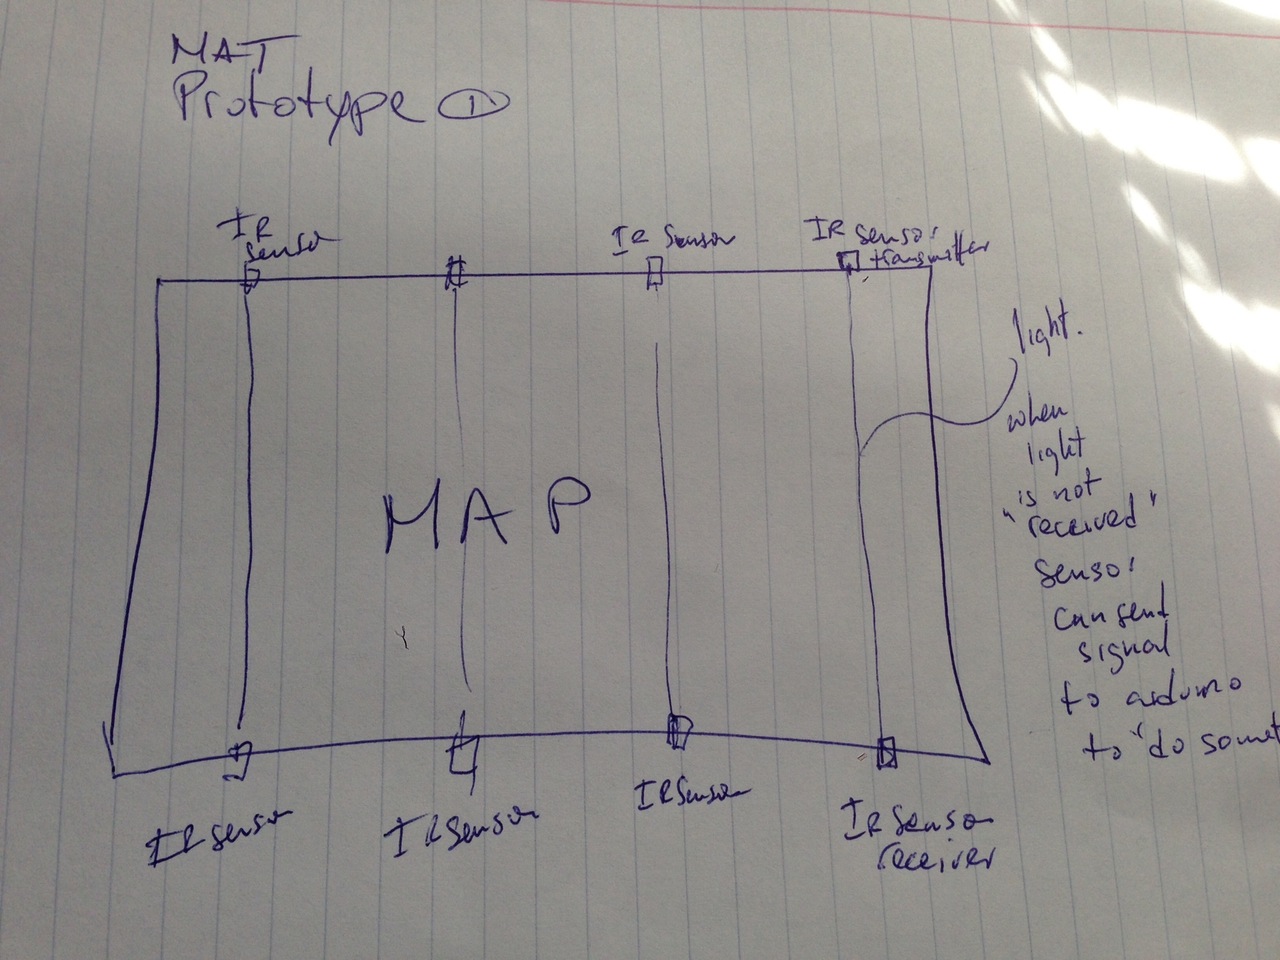 MAT
Prototype 1
IR
sensor
IR sensor
IR sensor
transmitter
light.
when
light
"is not
received"
sensor
can sent
signal
to arduino
to "do somet
MAP
IR sensor
IR sensor
IR sensor
IR sensor
receiver